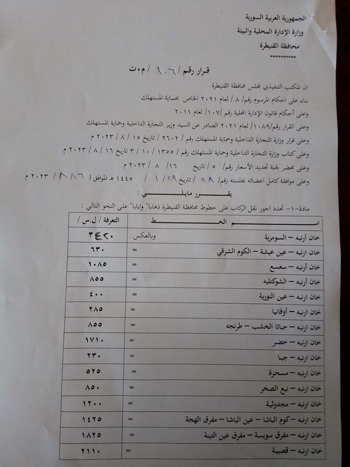 الجمهورية العربية السورية
وزارة الإدارة المحلية والبيئة
محافظة القنيطرة
**********
قرار رقم / ١٠٦ / م.ت
ان المكتب التنفيذي لمجلس محافظة القنيطرة
بناء على احكام المرسوم رقم / ٨ / لعام ٢٠٢١ الخاص بحماية المستهلك
وعلى أحكام قانون الإدارة المحلية رقم / ١٠٧ / لعام ٢٠١١
وعلى القرار رقم / ١٠٨٩ / لعام ٢٠٢١ الصادر عن السيد وزير التجارة الداخلية وحماية المستهلك
وعلى قرار وزارة التجارة الداخلية وحماية المستهلك رقم / ٢٦٠٢ / تاريخ ١٥ / ٨ / ٢٠٢٣ م
وعلى كتاب وزارة التجارة الداخلية وحماية المستهلك رقم / ١٣٥٥ / ١٠ / ٣ تاريخ ١٦ / ٨ / ٢٠٢٣ م
وعلى محضر لجنة تحديد الأسعار رقم / ٥ / تاريخ ١٦ / ٨ / ٢٠٢٣ م
وعلى موافقة كامل اعضائه بجلسته رقم / ٢٨ / تاريخ / ٢٩ / ١ / ١٤٤٥ هـ الموافق لـ ١٦ / ٨ / ٢٠٢٣ م
يقـــرر مايلـــي :
مادة-١- تحدد اجور نقل الركاب على خطوط محافظة القنيطرة ذهاباً وإياباً على النحو التالي :
اســـم الخـــط التعرفة / ل.س /
خان أرنبه – السومرية وبالعكس
خان أرنبه – عين عيشة – الكوم الشرقي = ٦٣٠
خان أرنبه – سعسع = ١٠٨٥
خان أرنبه – الشوكتليه = ٨٥٥
خان أرنبه – عين النورية = ٤٠٠
خان أرنبه – أوفانيا = ٢٨٥
خان ارنبه – جباثا الخشب – طرنجه = ٨٥٥
خان ارنبه – حضر = ١٧١٠
خان ارنبه – جبا = ٢٣٠
خان ارنبه – مسحرة = ٥٢٥
خان ارنبه – نبع الصخر = ٨٥٠
خان ارنبه – مجدولية = ١٢٠٠
خان ارنبه – كوم الباشا – عين الباشا – مفرق الهجة = ١٤٢٥
خان ارنبه – مفرق سويسة – مفرق عين التينة = ١٨٢٥
خان ارنبه – قصيبة = ٢١١٠